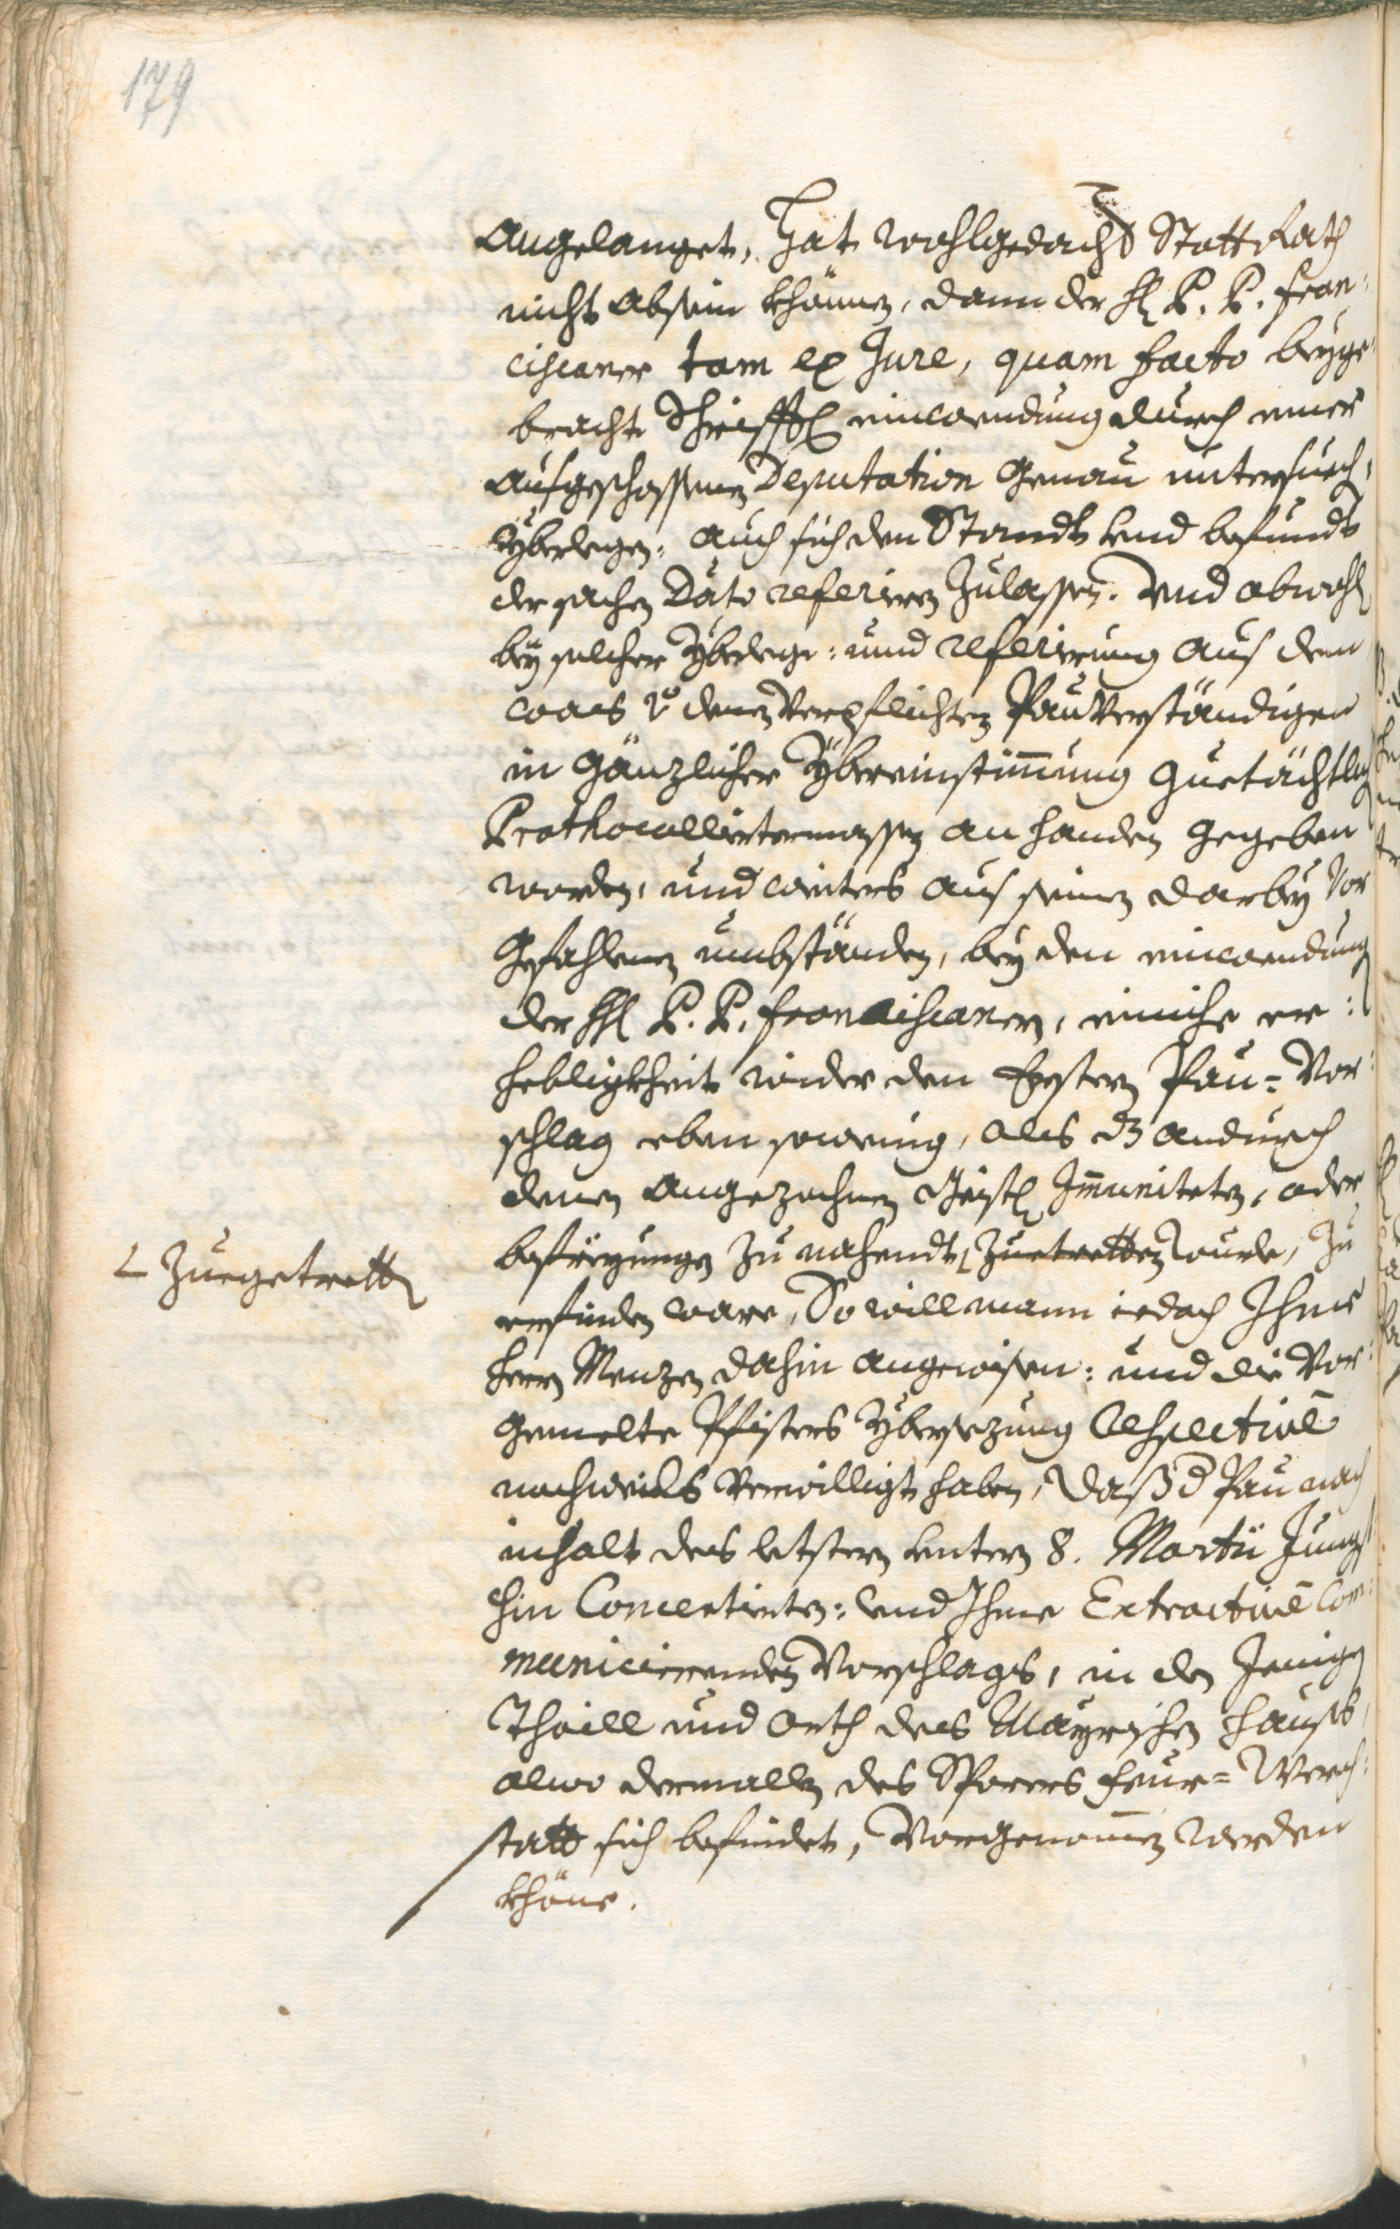 179
angelanget, Hat wohlgedacht Statt Rath
nicht absein khönnen, dann der H P. P. Fran¬
ciscaner tam ex Jure, quam facto beyge¬
bracht Schrifftl einwendung durch einer
aufgeschossenen Deputation Genau untersuch¬
Yberlegen: auch sich den Standt und befundt
der sachen Dato referiren Zulassen. Und obwohl
bey solcher Yberlege: unnd referirung aus dem
waß v denen verpflichten Pauverständigen
in Gänzlicher Ybereinstimung Guetächtlich
Prothocolliertermassen an handen gegeben
worden, und weiters aus seinen darbey vor
Gefahlenen umbständen, bey den einwendung
der HH P. P. Franciscanern, einiche er:
hebligkheit wider den Erstern Pau=Vor¬
schlag eben sowenig, als dz andurch
denen angezochnen Geistl Imuniteten, oder
∟ Zuegetretten
befreyungen zu nahendt ∟ zuetretten wurde, zu
erfinden ware, So will mann iedoch Ihme
Herrn Menzen dahin angewisen: und die vor¬
gemelte Pfisters Ybersezung Respective
nachmals verwilligt haben, daß d Pau nach
inhalt des letstern untern 8. Martii Jungst
hin Concertierten: und Ihme Extractivè Com¬
municierenden Vorschlags, in den Jenigen
Thaill und Orth des Mayrischen Hauses,
alwo dermallen des Sporers Feur=Werch¬
statt sich befindet, Vorgenomen werden
khöne.